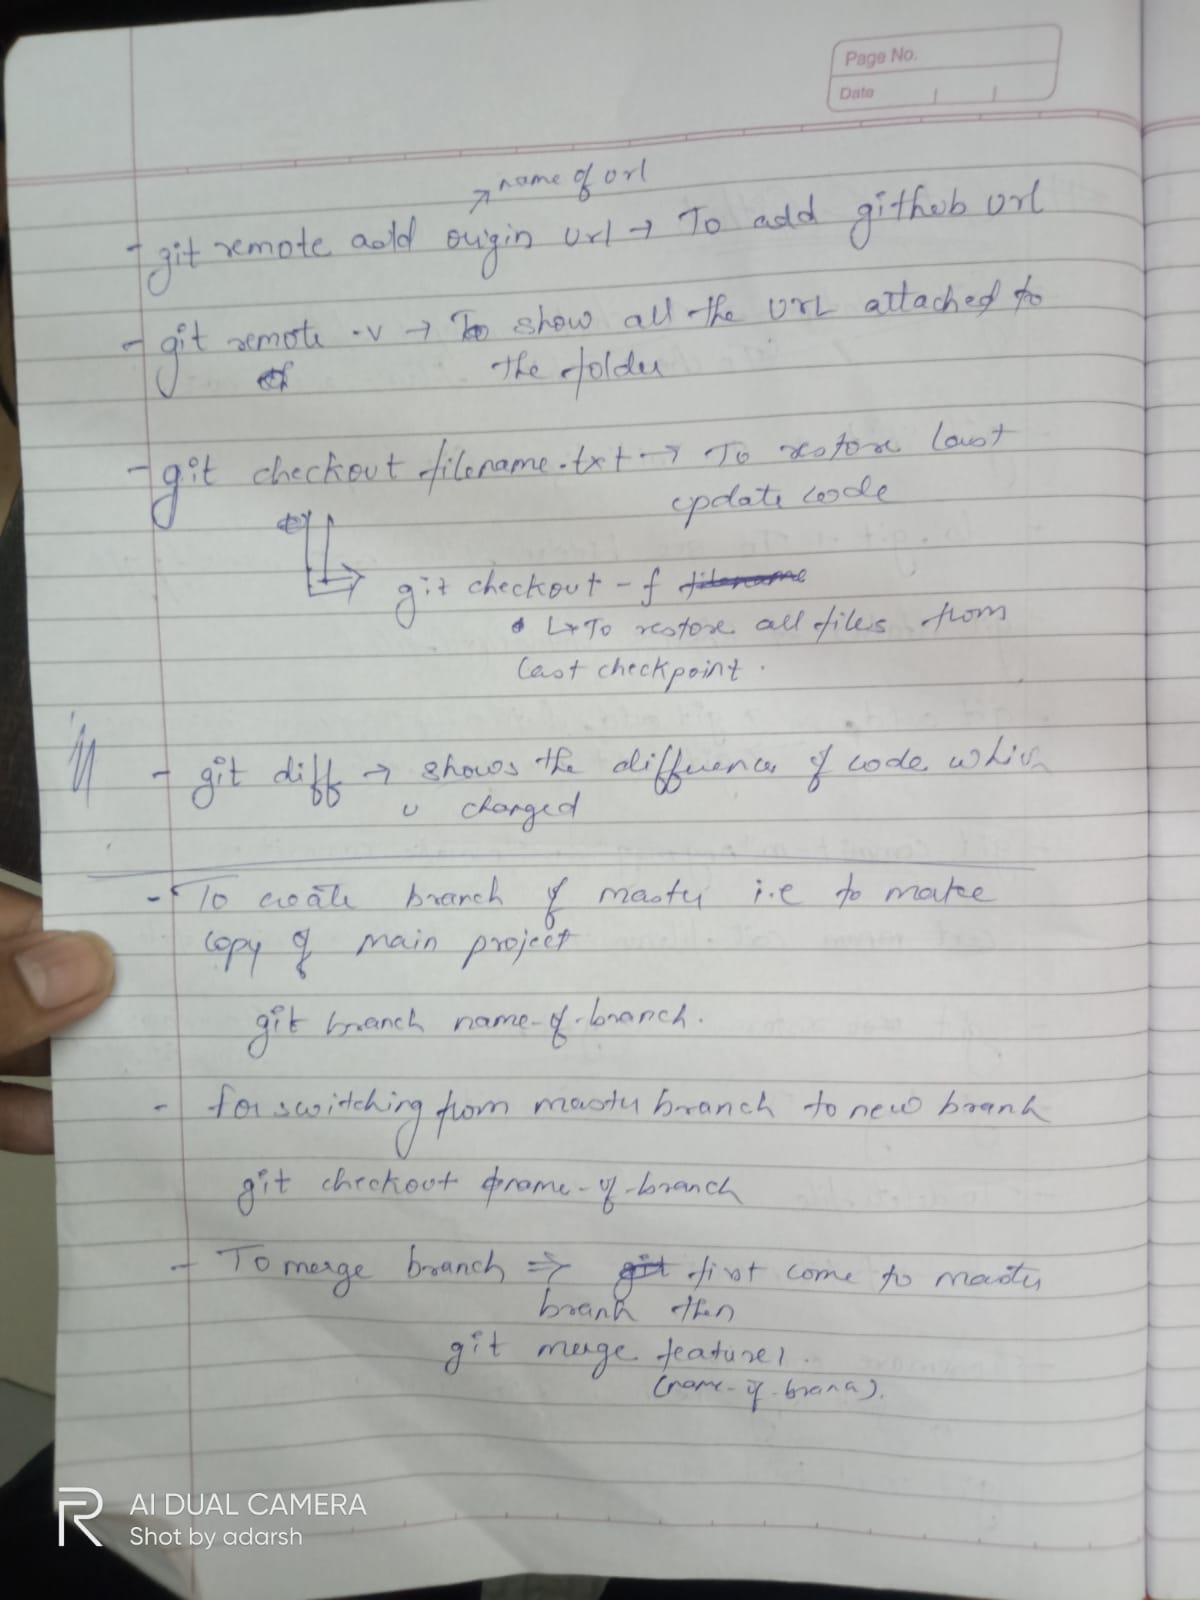 Page No.
Date
name of url
- git remote add origin url → To add githeb url
- git remote -v → To show all the URL attached to
the folder
- git checkout filename.txt → To restore last
update code
git checkout -f filename
↳ To restore all files from
last checkpoint.
- git diff → shows the difference of code which
changed
- To create branch of master i.e to make
copy of main project
git branch name-of-branch.
- for switching from master branch to new branh
git checkout name-of-branch
- To merge branch ⇒ git first come to master
branh then
git merge feature1.
(name-of-branh).
AI DUAL CAMERA
Shot by adarsh